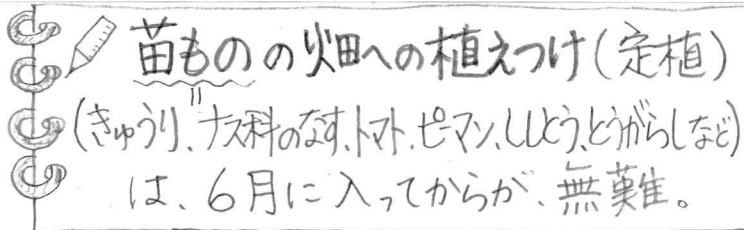 苗ものの畑への植えつけ(定植)
〃
(きゅうり、ナス科のなす、トマト、ピーマン、ししとう、とうがらしなど)
は、6月に入ってからが、無難。